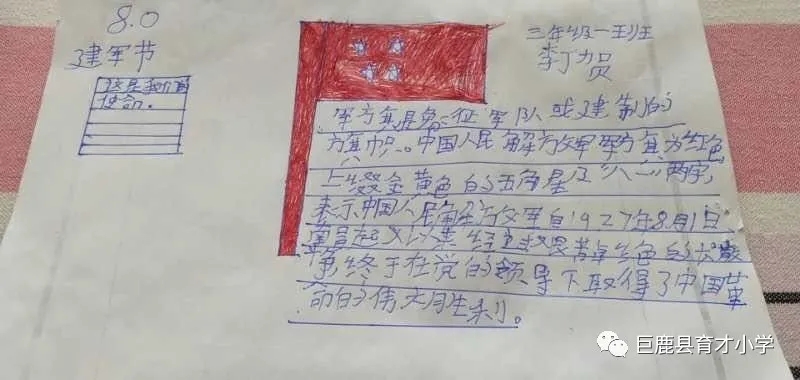 8.0
建军节
这是我们的
使命。
三年级一班
李丁贺
军旗是象征军队或建制的
旗帜。中国人民解放军军旗为红色,
上缀金黄色的五角星及"八一"两字,
表示中国人民解放军自1927年8月1日
南昌起义以来经过艰苦卓绝的
最终于在党的领导下取得了中国革
命的伟大胜利。
巨鹿县育才小学